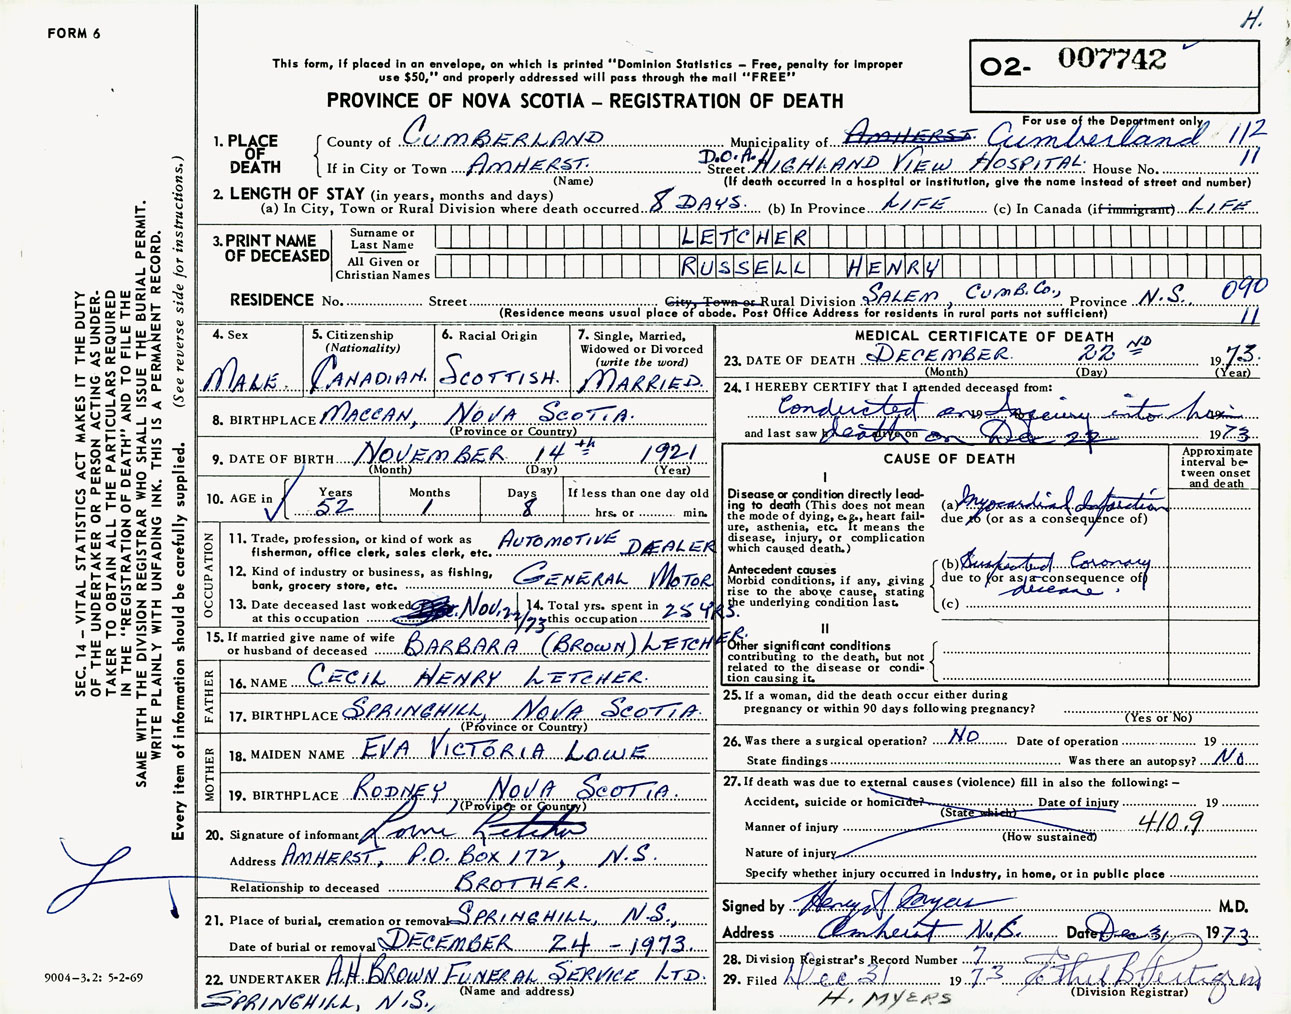 H.
FORM 6
O2- 007742
This form, if placed in an envelope, on which is printed "Dominion Statistics – Free, penalty for improper
use $50," and properly addressed will pass through the mail "FREE"
PROVINCE OF NOVA SCOTIA – REGISTRATION OF DEATH
For use of the Department only
1. PLACE OF DEATH County of CUMBERLAND Municipality of AMHERST. Cumberland 112
If in City or Town AMHERST. (Name) D.O.A. Street HIGHLAND VIEW HOSPITAL. House No. 11
(If death occurred in a hospital or institution, give the name instead of street and number)
2. LENGTH OF STAY (in years, months and days)
(a) In City, Town or Rural Division where death occurred 8 DAYS. (b) In Province LIFE (c) In Canada (if immigrant) LIFE
3. PRINT NAME OF DECEASED Surname or Last Name LETCHER
All Given or Christian Names RUSSELL HENRY
RESIDENCE No. Street City, Town or Rural Division SALEM, CUMB. CO., Province N.S. 090
(Residence means usual place of abode. Post Office Address for residents in rural parts not sufficient) 11
4. Sex MALE.
5. Citizenship (Nationality) CANADIAN.
6. Racial Origin SCOTTISH.
7. Single, Married, Widowed or Divorced (write the word) MARRIED.
8. BIRTHPLACE MACCAN, NOVA SCOTIA.
(Province or Country)
9. DATE OF BIRTH NOVEMBER 14th 1921
(Month) (Day) (Year)
10. AGE in Years 52 Months 1 Days 8 If less than one day old hrs. or min.
OCCUPATION
11. Trade, profession, or kind of work as fisherman, office clerk, sales clerk, etc. AUTOMOTIVE DEALER
12. Kind of industry or business, as fishing, bank, grocery store, etc. GENERAL MOTOR
13. Date deceased last worked at this occupation Nov. 22/73 14. Total yrs. spent in this occupation 25 YRS.
15. If married give name of wife or husband of deceased BARBARA (BROWN) LETCHER.
FATHER
16. NAME CECIL HENRY LETCHER.
17. BIRTHPLACE SPRINGHILL, NOVA SCOTIA.
(Province or Country)
MOTHER
18. MAIDEN NAME EVA VICTORIA LOWE
19. BIRTHPLACE RODNEY, NOVA SCOTIA.
(Province or Country)
20. Signature of informant Lorne Letcher
Address AMHERST, P.O. BOX 172, N.S.
Relationship to deceased BROTHER.
21. Place of burial, cremation or removal SPRINGHILL, N.S.,
Date of burial or removal DECEMBER 24 - 1973.
22. UNDERTAKER A.H. BROWN FUNERAL SERVICE LTD.
(Name and address)
SPRINGHILL, N.S.,
MEDICAL CERTIFICATE OF DEATH
23. DATE OF DEATH DECEMBER 22 ND 1973.
(Month) (Day) (Year)
24. I HEREBY CERTIFY that I attended deceased from:
Conducted an Inquiry into his 19 19
and last saw h alive on death on Dec 22 1973
CAUSE OF DEATH
Approximate interval between onset and death
I
Disease or condition directly leading to death (This does not mean the mode of dying, e.g., heart failure, asthenia, etc. It means the disease, injury, or complication which caused death.)
(a) Myocardial Infarction
due to (or as a consequence of)
Antecedent causes
Morbid conditions, if any, giving rise to the above cause, stating the underlying condition last.
(b) Suspected Coronary
due to (or as a consequence of)
disease.
(c)
II
Other significant conditions
contributing to the death, but not related to the disease or condition causing it.
25. If a woman, did the death occur either during
pregnancy or within 90 days following pregnancy?
(Yes or No)
26. Was there a surgical operation? NO Date of operation 19
State findings Was there an autopsy? No
27. If death was due to external causes (violence) fill in also the following: –
Accident, suicide or homicide? Date of injury 19
(State which)
Manner of injury 410.9
(How sustained)
Nature of injury
Specify whether injury occurred in industry, in home, or in public place
Signed by Henry S. Myers M.D.
Address Amherst N.S. Date Dec 31 1973
28. Division Registrar's Record Number 7
29. Filed Dec 31 1973 Ethel B.
(Division Registrar)
H. MYERS
SEC. 14 – VITAL STATISTICS ACT MAKES IT THE DUTY
OF THE UNDERTAKER OR PERSON ACTING AS UNDERTAKER
TO OBTAIN ALL THE PARTICULARS REQUIRED
IN THE "REGISTRATION OF DEATH" AND TO FILE THE
SAME WITH THE DIVISION REGISTRAR WHO SHALL ISSUE THE BURIAL PERMIT.
WRITE PLAINLY WITH UNFADING INK. THIS IS A PERMANENT RECORD.
Every item of information should be carefully supplied. (See reverse side for instructions.)
9004–3.2: 5-2-69